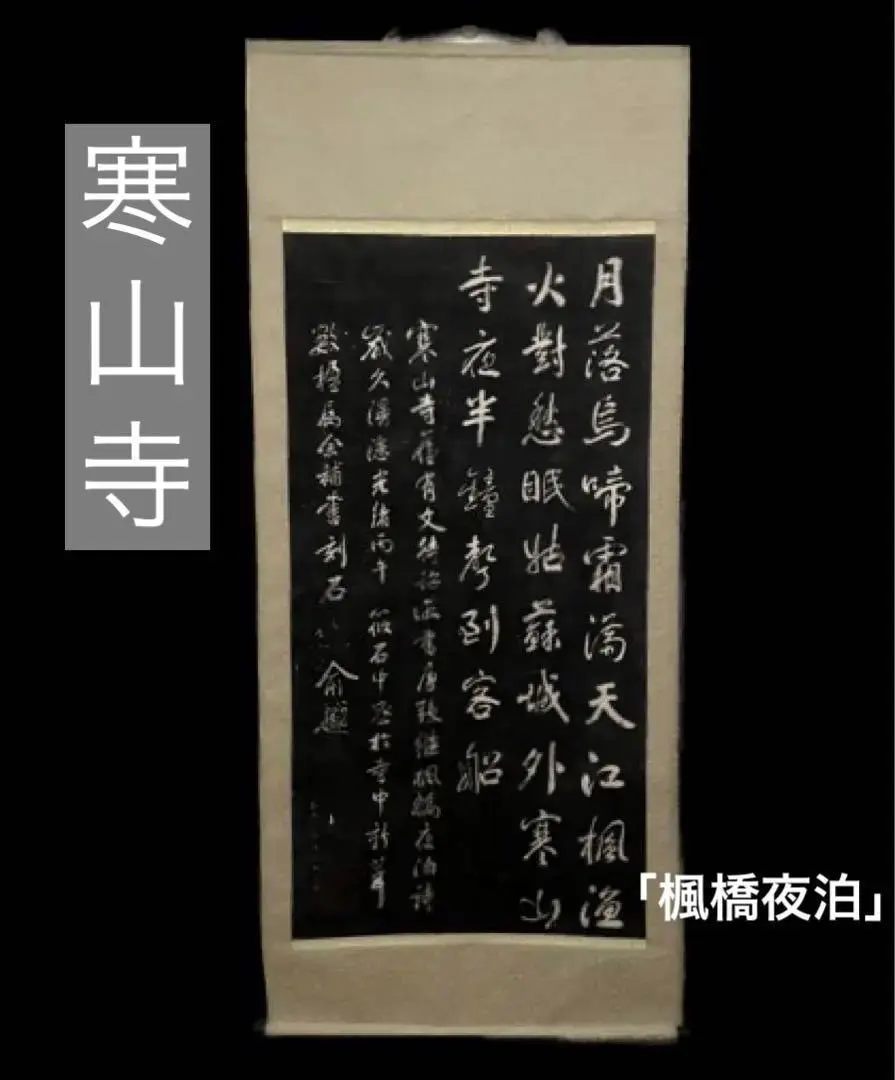 寒山寺
月落烏啼霜滿天江楓漁
火對愁眠姑蘇城外寒山
寺夜半鐘聲到客船
寒山寺舊有文待詔所書唐張繼楓橋夜泊詩
歲久漫漶光緒丙午筱石中丞於寺中新葺
數楹屬余補書刻石俞樾
「楓橋夜泊」